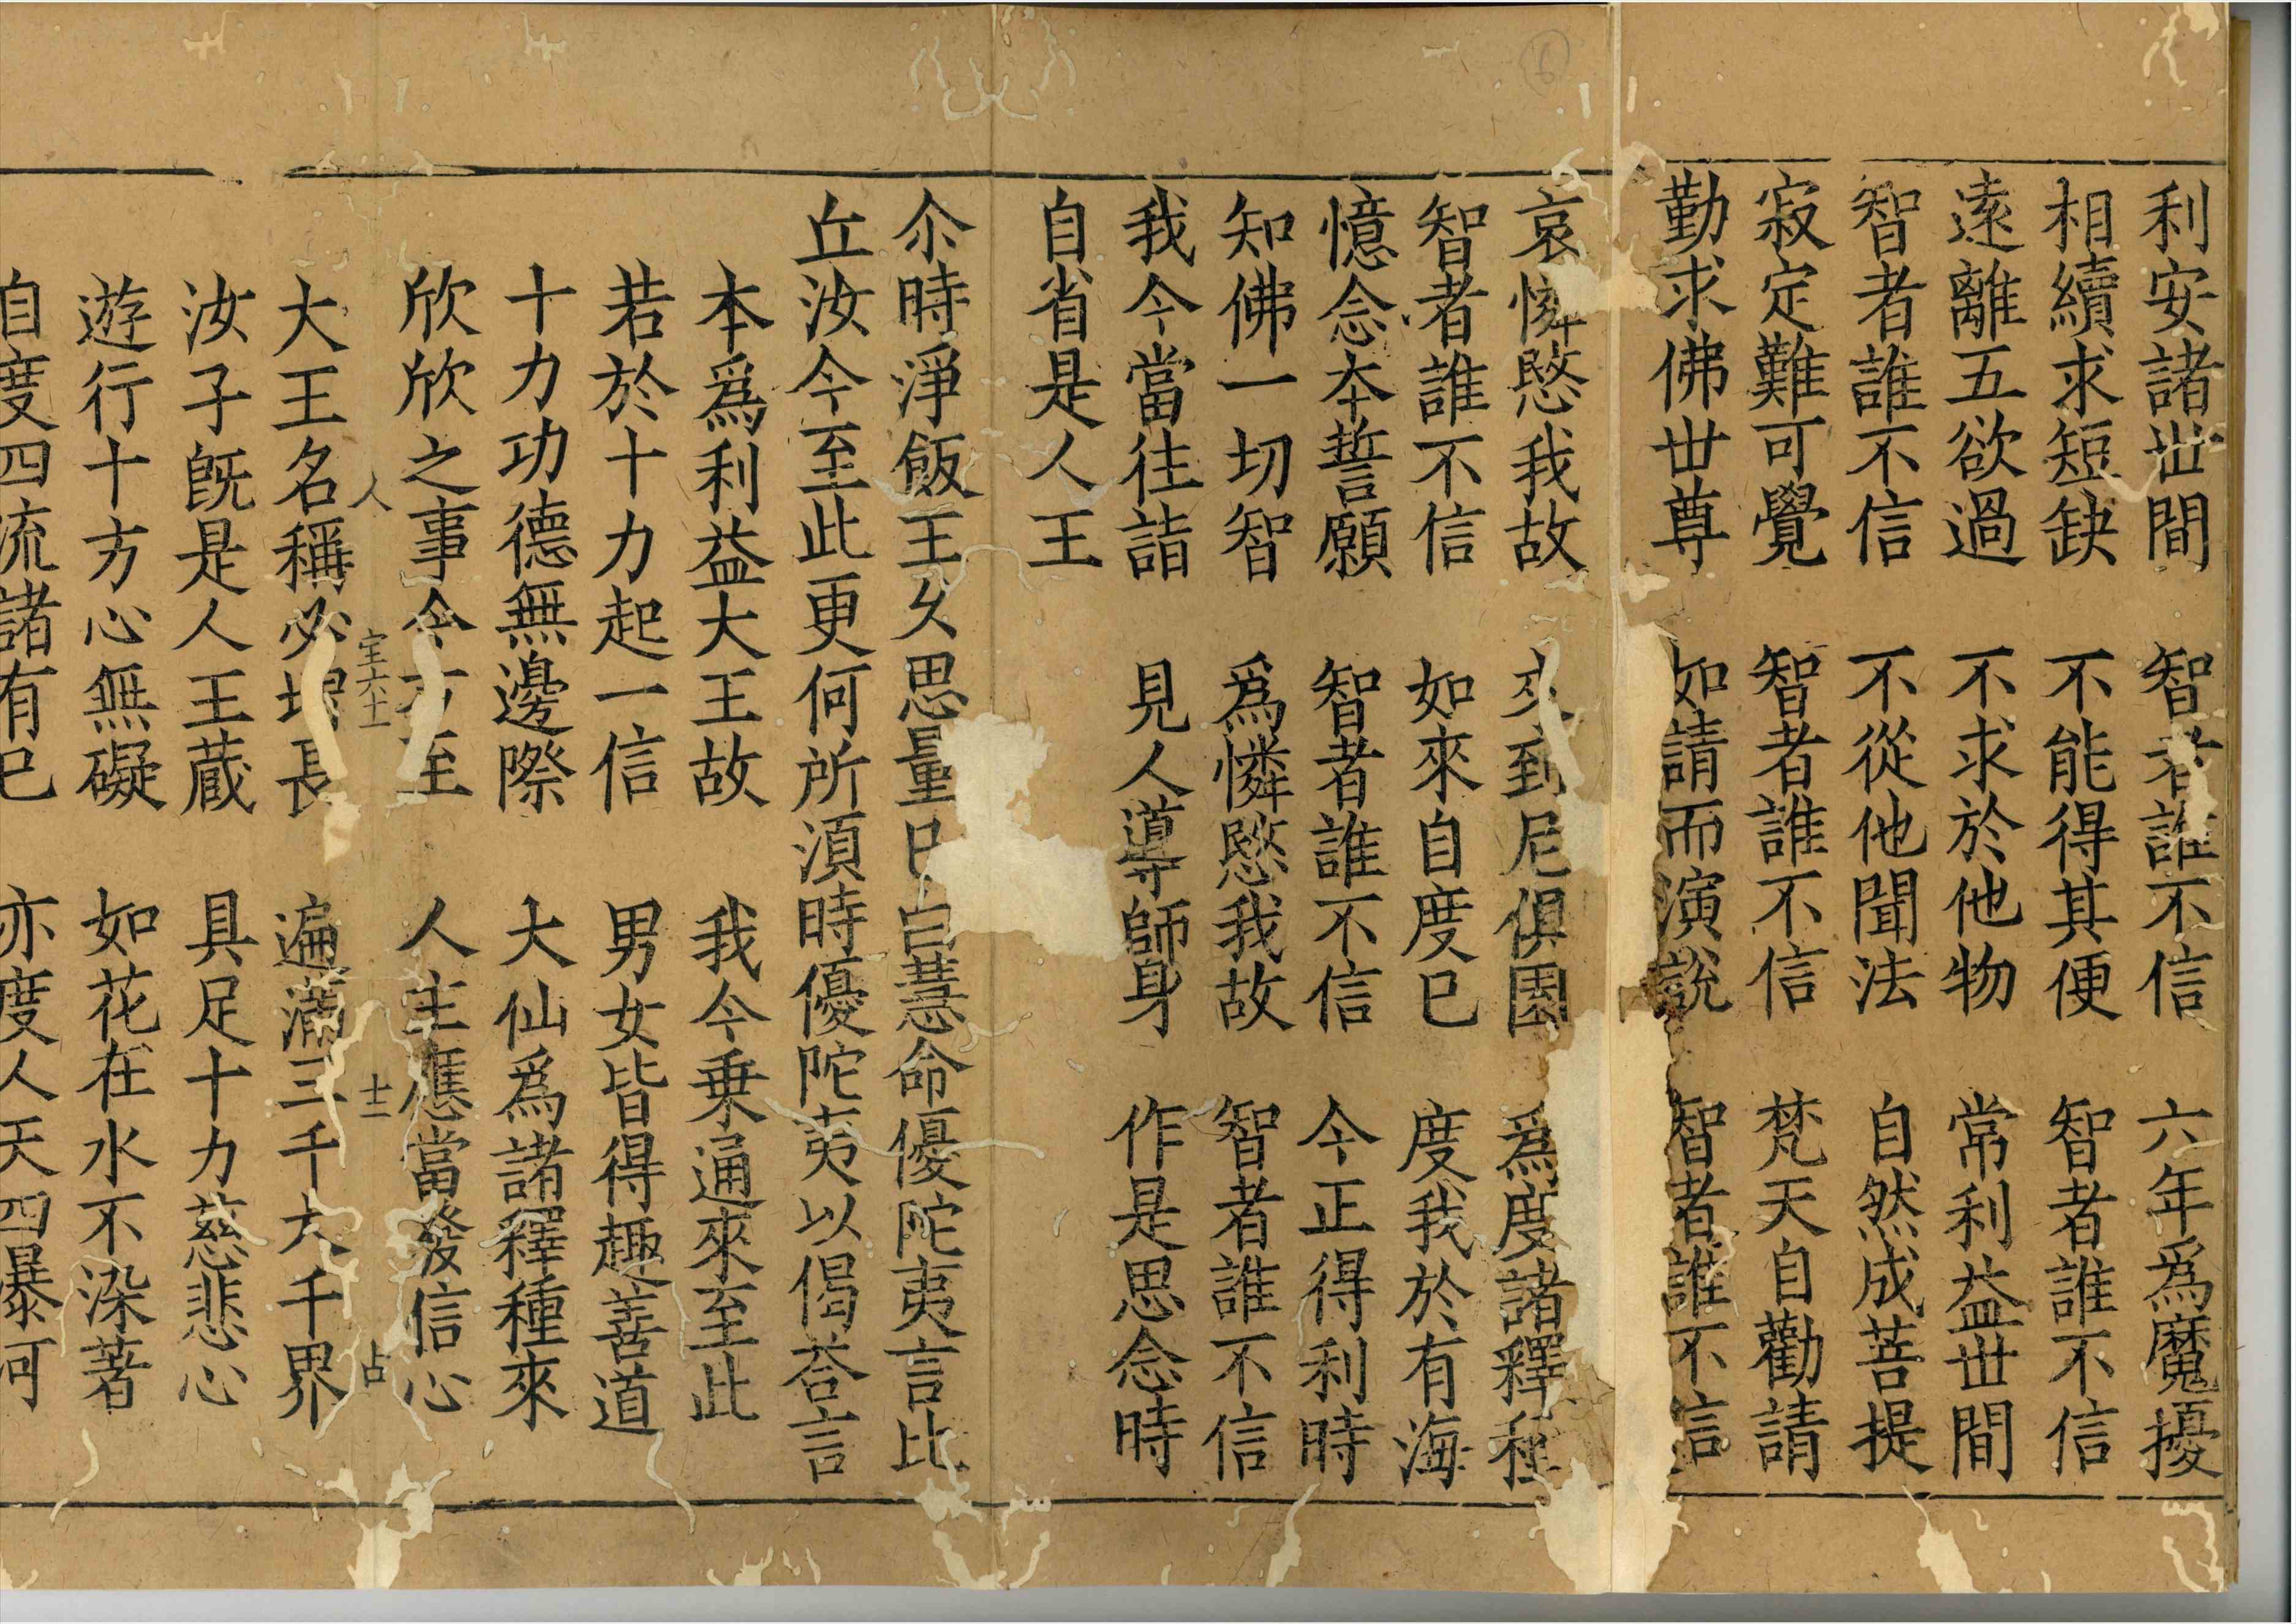 利安諸世間　智者誰不信　六年爲魔擾
相續求短缺　不能得其便　智者誰不信
遠離五欲過　不求於他物　常利益世間
智者誰不信　不從他聞法　自然成菩提
寂定難可覺　智者誰不信　梵天自勸請
勤求佛世尊　如請而演說　智者誰不信
哀憐愍我故　來到尼俱園　爲度諸釋種
智者誰不信　如來自度已　度我於有海
憶念本誓願　智者誰不信　今正得利時
知佛一切智　爲憐愍我故　智者誰不信
我今當往詣　見人導師身　作是思念時
自省是人王
尒時淨飯王父思量已白慧命優陀夷言比
丘汝今至此更何所湏時優陀夷以偈荅言
本爲利益大王故　我今乗通來至此
若於十力起一信　男女皆得趣善道
十力功德無邊際　大仙爲諸釋種來
欣欣之事今方至　人主應當發信心
人　士　占
大王名稱必增長　遍滿三千大千界
汝子旣是人王蔵　具足十力慈悲心
遊行十方心無礙　如花在水不染著
自度四流諸有已　亦度人天四暴河